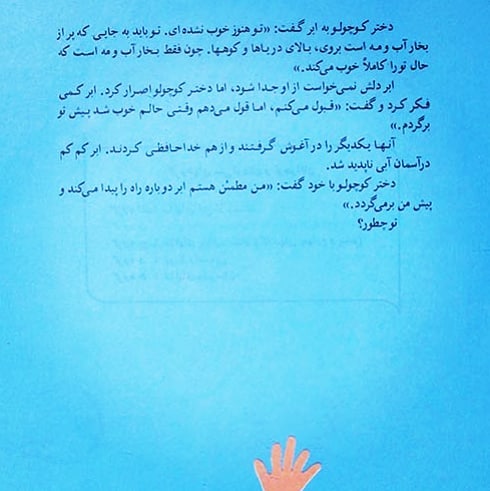 دختر کوچولو به ابر گفت: «تو هنوز خوب نشده‌ای. تو باید به جایی که پر از
بخار آب و مه است بروی، بالای دریاها و کوهها. چون فقط بخار آب و مه است که
حال تو را کاملاً خوب می‌کند.»
ابر دلش نمی‌خواست از او جدا شود، اما دختر کوچولو اصرار کرد. ابر کمی
فکر کرد و گفت: «قبول می‌کنم، اما قول می‌دهم وقتی حالم خوب شد پیش تو
برگردم.»
آنها یکدیگر را در آغوش گرفتند و از هم خداحافظی کردند. ابر کم کم
در آسمان آبی ناپدید شد.
دختر کوچولو با خود گفت: «من مطمئن هستم ابر دوباره راه را پیدا می‌کند و
پیش من برمی‌گردد.»
تو چطور؟